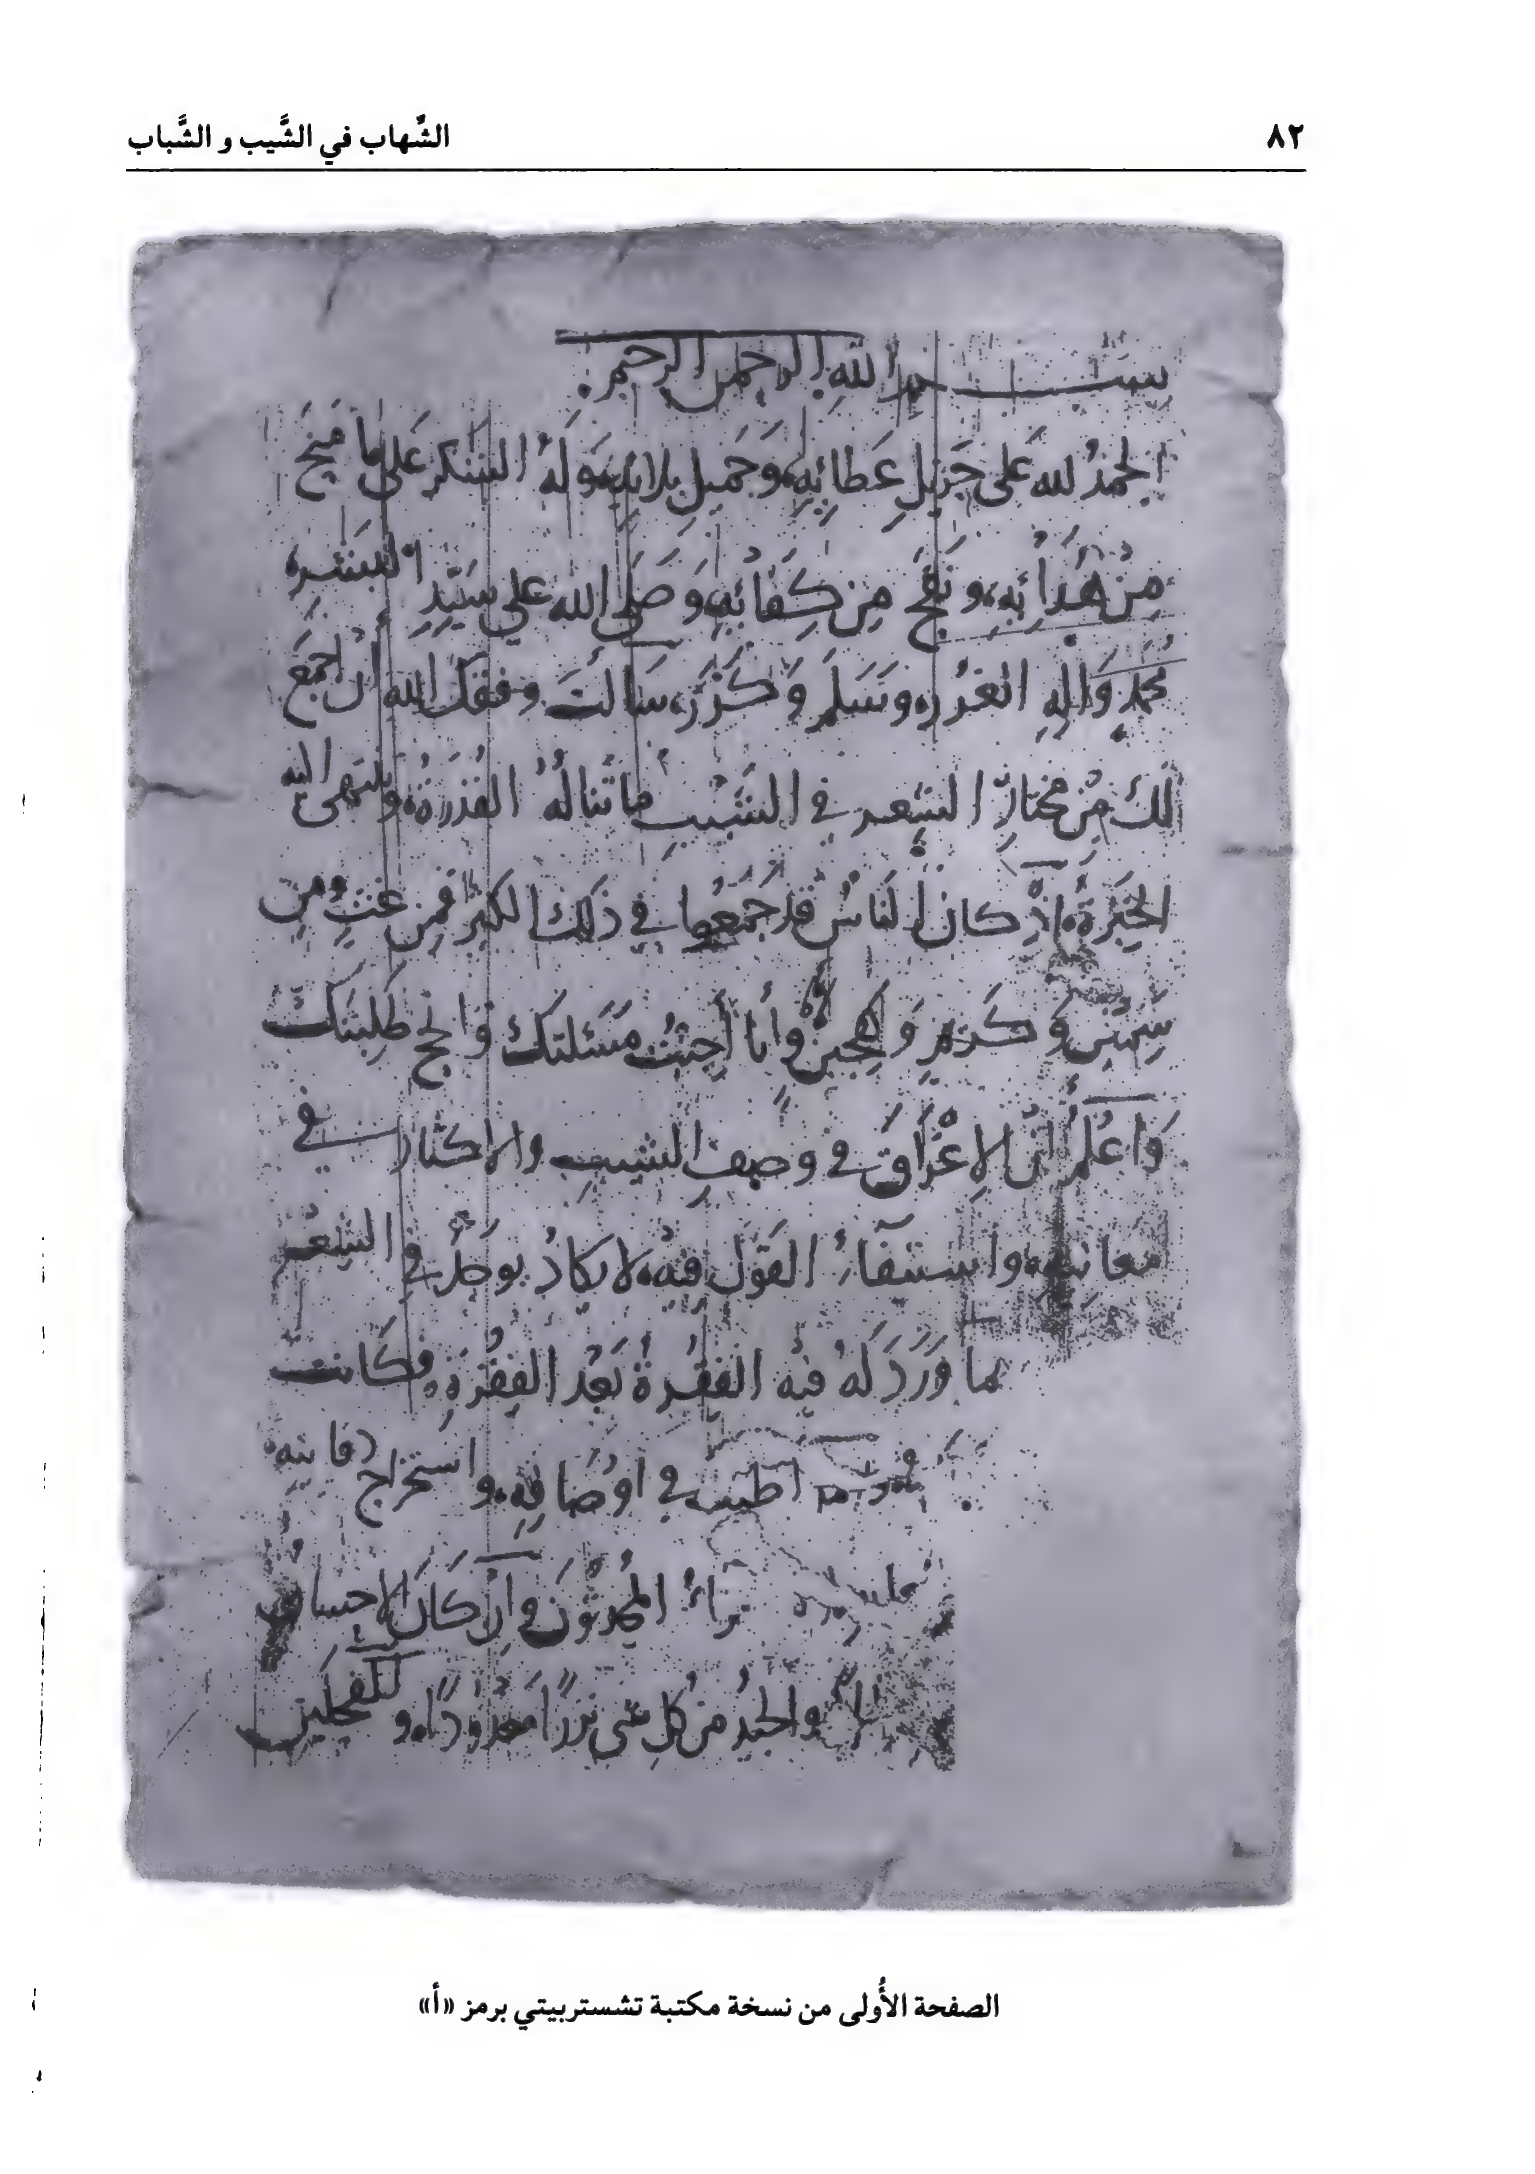 ٨٢
الشِّهاب في الشَّيب و الشَّباب
بسم الله الرحمن الرحيم
الحمدُ لله على جَزيلِ عَطائِهِ وَجَميلِ بلائِه وَلَهُ الشكر عَلى ما مَنح
مِنْ هُدائِهِ ونَفَحَ مِن كِفائِهِ وَصَلى الله على سَيّدِ البشر
محمدٍ وَالِهِ الغُرر وسَلم وَكَرَّرَ سَالتَ وفقك الله أن اجمَعَ
لك مِنْ مختارِ الشِعر في الشَيْب ما تنالُهُ القُدرَةُ وينتهى اليه
الخِبْرَةُ إذْ كانَ الناسُ قد جَمعُوا في ذلك الكثيرَ فمِن غثٍ ومن
سَمينٍ وكَريمٍ وَهَجينٍ وأنا أُجيبُ مَسئلتك وانجح طَلِبتكَ
وَاعْلمْ انّ الاِغراقَ في وَصفِ الشيبِ والاكثارَ في
معانيه واستيفاءَ القَول فيهْ لا يكادُ يوجدُ في الشعر
وَرَدَ لهُ فيه الفِقْرةُ بَعْدَ الفِقْرَةِ فكانت
اطنب في اوصافِهِ واستخراج دفاينه
الشعراءُ المُحدثُونَ وإن كانَ الاحسان
والجيدُ من كل شي نزرًا معدُودًا وللفحلَين
الصفحة الأُولى من نسخة مكتبة تشستربيتي برمز «أ»